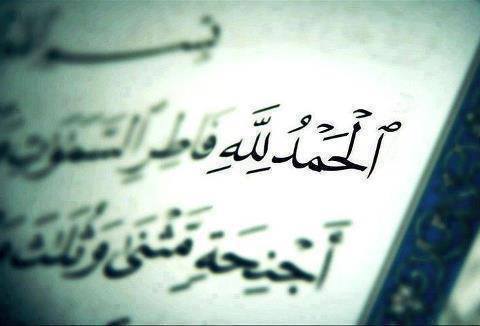 بِسْمِ اللَّهِ
ٱلْحَمْدُ لِلَّهِ فَاطِرِ ٱلسَّمَٰوَٰتِ
أَجْنِحَةٍ مَّثْنَىٰ وَثُلَٰثَ